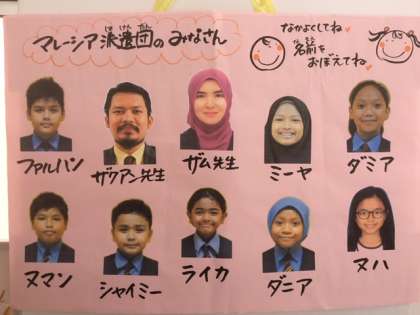 マレーシア派遣団のみなさん
はけんだん
なかよくしてね
名前を
おぼえてね
ファルハン
ザクアン先生
ザム先生
ミーヤ
ダミア
ヌマン
シャイミー
ライカ
ダニア
ヌハ